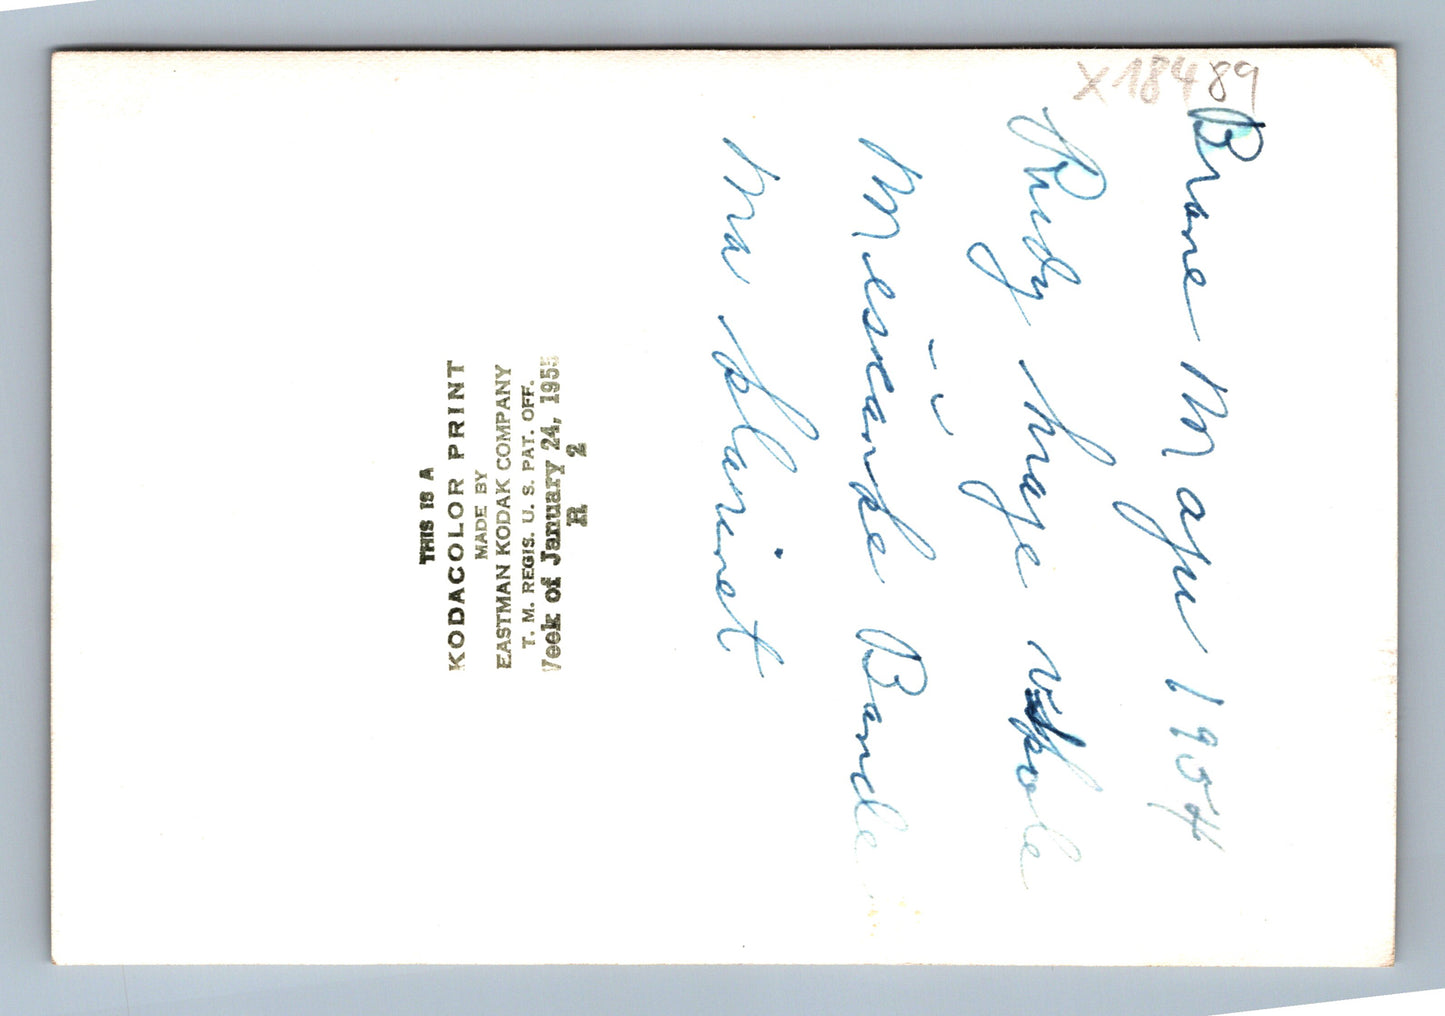 X18489
Brane Maju 1954
Rudy hraje v
Mescanke
na klarinet
THIS IS A
KODACOLOR PRINT
MADE BY
EASTMAN KODAK COMPANY
T. M. REGIS. U. S. PAT. OFF.
Week of January 24, 1955
R 2